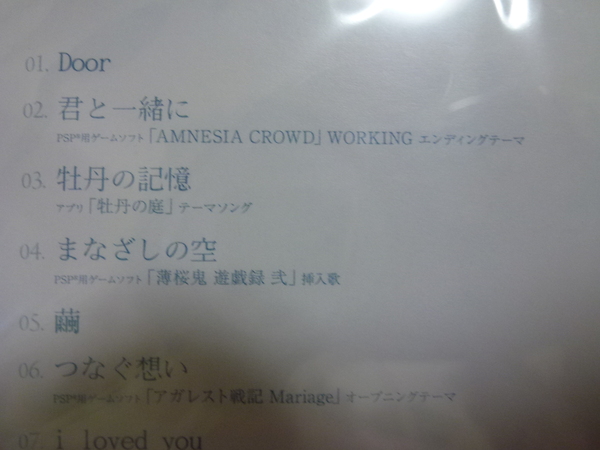 01. Door
02. 君と一緒に
PSP®用ゲームソフト「AMNESIA CROWD」WORKING エンディングテーマ
03. 牡丹の記憶
アプリ「牡丹の庭」テーマソング
04. まなざしの空
PSP®用ゲームソフト「薄桜鬼 遊戯録 弐」挿入歌
05. 繭
06. つなぐ想い
PSP®用ゲームソフト「アガレスト戦記 Mariage」オープニングテーマ
07. i loved you